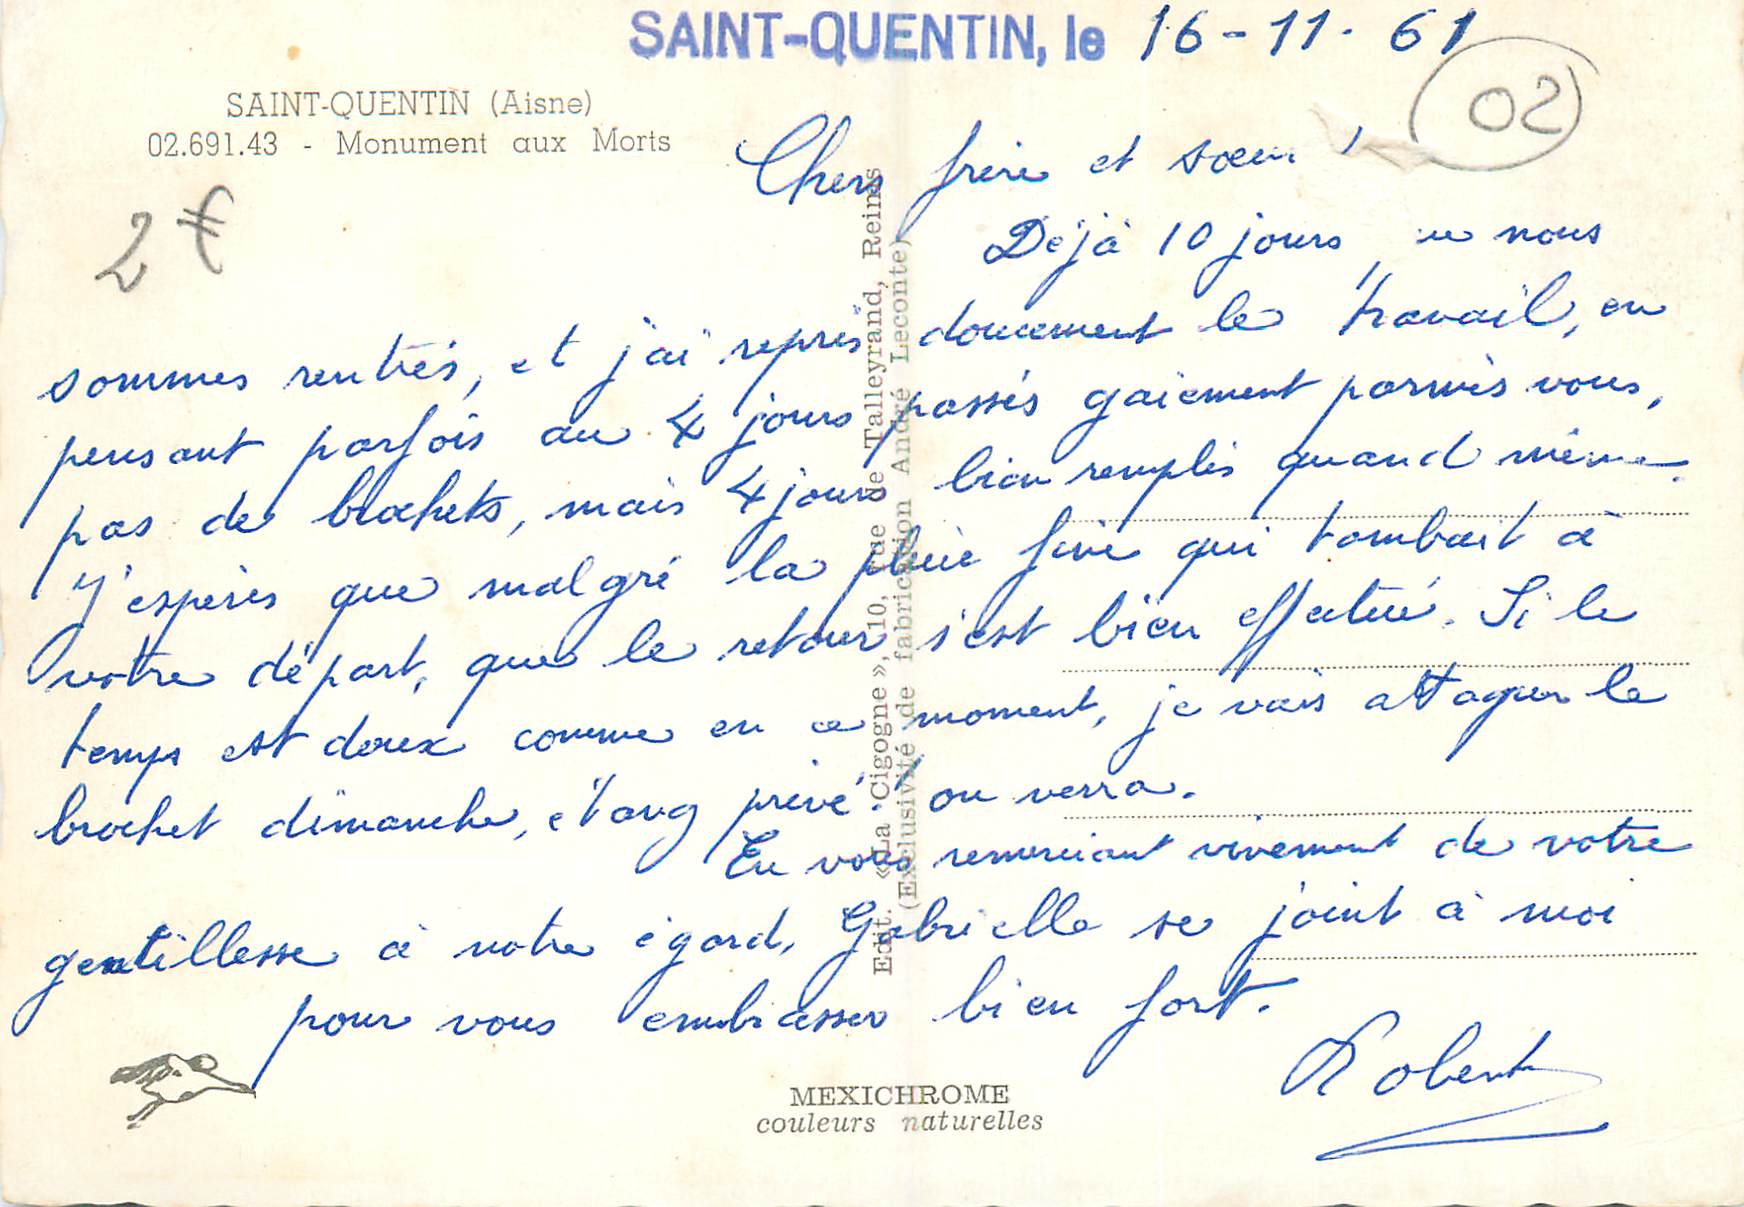 SAINT-QUENTIN, le 16-11-61
02
SAINT-QUENTIN (Aisne)
02.691.43 - Monument aux Morts
2 €
Chers frère et sœur,
Déjà 10 jours nous
sommes rentrés, et j'ai repris doucement le travail, en
pensant parfois au 4 jours passés gaiement parmis vous,
pas de brochets, mais 4 jours bien remplis quand même.
J'espères que malgré la pluie fine qui tombait à
votre départ, que le retour s'est bien effectué. Si le
temps est doux comme en ce moment, je vais attaquer le
brochet dimanche, étang privé. on verra.
En vous remerciant vivement de votre
gentillesse à notre égard, Gabrielle se joint à moi
pour vous embrasser bien fort.
Robert
Edit. «La Cigogne», 10, rue de Talleyrand, Reims
(Exclusivité de fabrication André Leconte)
MEXICHROME
couleurs naturelles